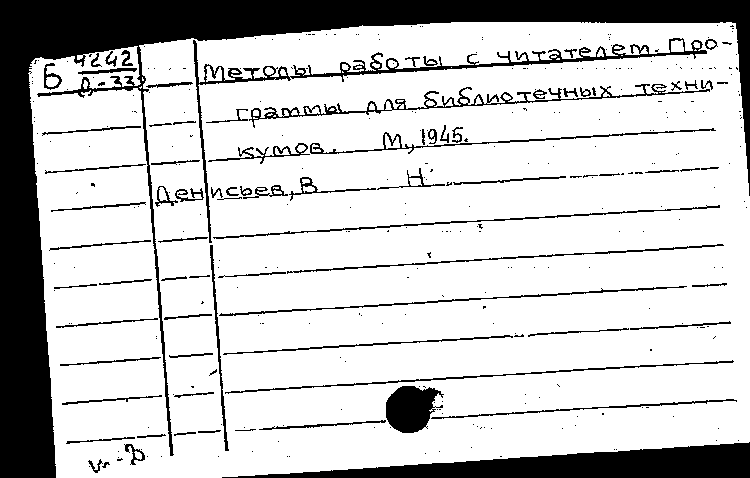 Б 4242
Д-332
Методы работы с читателем. Про-
граммы для библиотечных техни-
кумов. М., 1945.
Денисьев, В Н